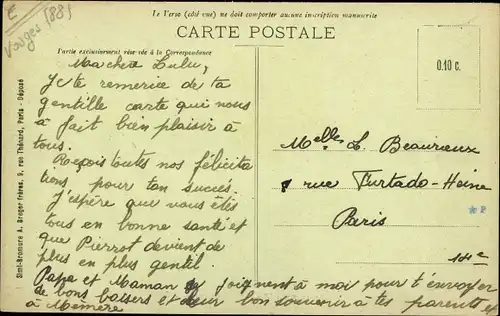 E
Vosges (88)
Le Verso (côté vue) ne doit comporter aucune inscription manuscrite
CARTE POSTALE
Partie exclusivement réservée à la Correspondance
0.10 c.
Simi-Bromure A. Breger frères, 9, rue Thénard, Paris - Déposé
Ma chère Lulu,
Je te remercie de ta
gentille carte qui nous
a fait bien plaisir à
tous.
Reçois toutes nos félicita
tions pour ton succès.
J'espère que vous êtes
tous en bonne santé et
que Pierrot devient de
plus en plus gentil
Papa et Maman se joignent à moi pour t'envoyer
de bons baisers et leur bon souvenir à tes parents et
à Mémère
Melle L. Beaurieux
rue Furtado-Heine
Paris
14e